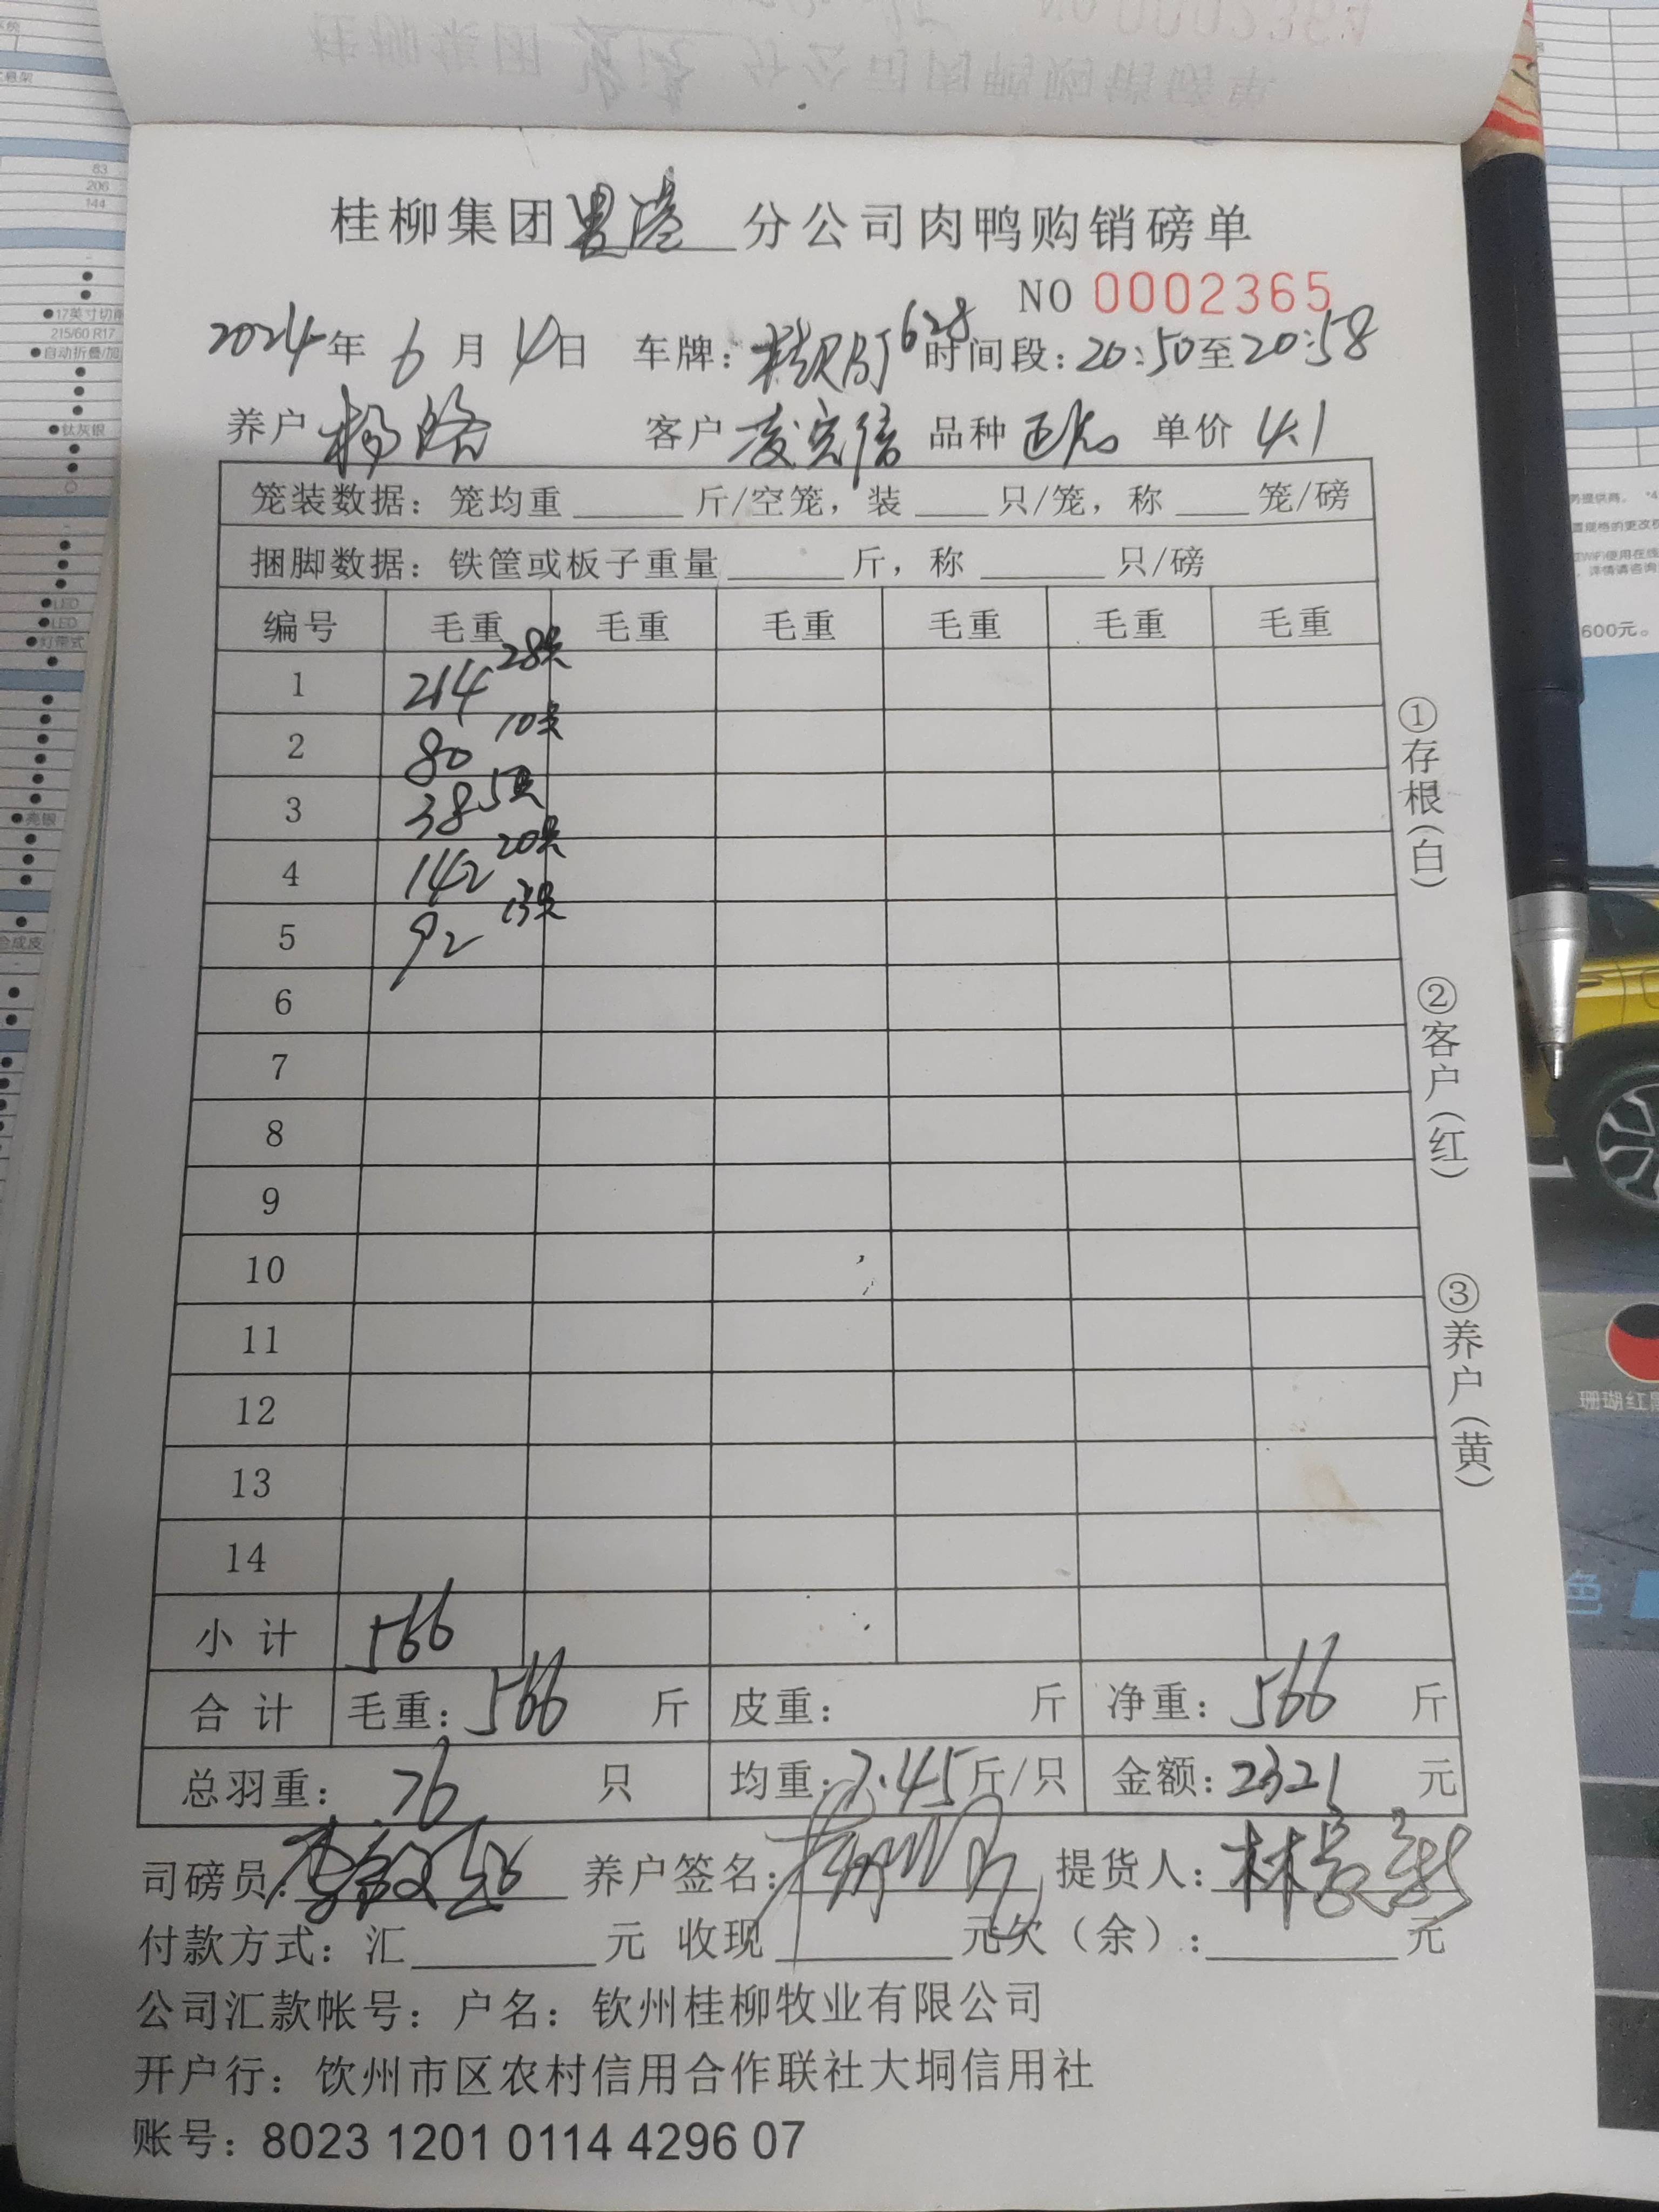 桂柳集团贵港分公司肉鸭购销磅单
NO 0002365
2024年 6 月 4日 车牌: 桂 628 时间段: 20:50至20:58
养户 杨 客户 品种 单价 4.1
笼装数据: 笼均重 ______ 斤/空笼, 装 ____ 只/笼, 称 ____ 笼/磅
捆脚数据: 铁筐或板子重量 ______ 斤, 称 ______ 只/磅
编号 毛重 毛重 毛重 毛重 毛重 毛重
1 214 28只
2 80 10只
3 38 5只
4 142 20只
5 92 13只
6
7
8
9
10
11
12
13
14
小 计 566
合 计 毛重: 566 斤 皮重: 斤 净重: 566 斤
总羽重: 76 只 均重: 7.45 斤/只 金额: 2321 元
司磅员: 养户签名: 提货人: 林
付款方式: 汇 ______ 元 收现 ______ 元欠(余): ______ 元
公司汇款帐号: 户名: 钦州桂柳牧业有限公司
开户行: 饮州市区农村信用合作联社大垌信用社
账号: 8023 1201 0114 4296 07
①存根(白)
②客户(红)
③养户(黄)
83
206
144
●17英寸切削
215/60 R17
●自动折叠/加
●钛灰银
●LED
●LED
●灯带式
●亮银
合成皮
600元。
珊瑚红
色